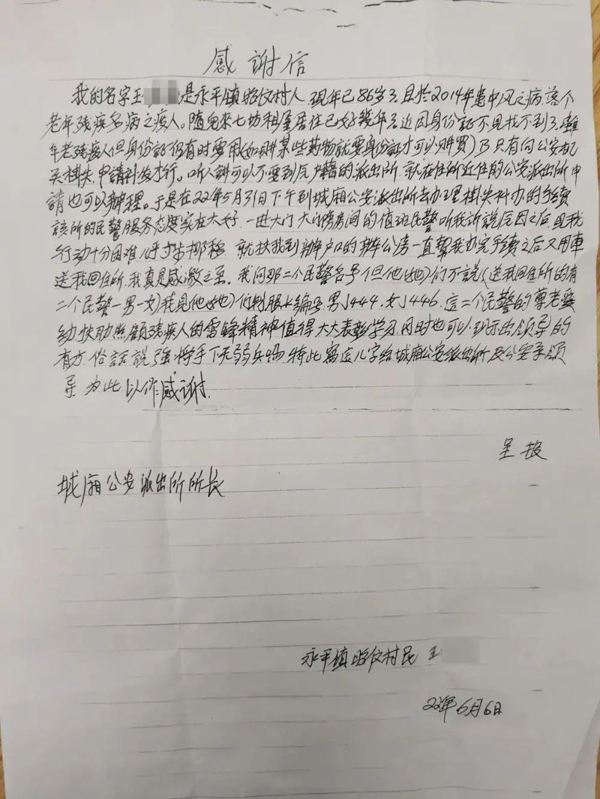 感謝信
我的名字王 是永平镇 村人 现年已86岁了,且於2014年患中风之病,这个
老年残疾多病之疾人。随兒来七坊租屋居住已好幾年了近因身份証不見找不到了,雖
年老残疾人但身份証仍有时需用(如购某些药物就要身份証才可以购買)乃只有向公安机
关掛失,申請补发才行。听人说可以不要到原户籍的派出所,就在住所近住的公安派出所申
請也可以辦理。于是在22年5月31日下午到城厢公安派出所去办理掛失补办的手續
該所的民警服务态度实在太好,一进大门 大门傍房间的值班民警听我訴说原因之后 且我
行动十分困难 几乎 挪移 就扶我到辦户口的辦公房一直幫我办完手續之后又用車
送我回住所,我真是感激之至。我问那二个民警名号但他(她)们不说(送我回住所的有
二个民警一男一女)我見他(她)们制服上編号男J444.女J446.這二个民警的尊老爱
幼扶助照顧残疾人的雷锋精神值得大大表彰学习同时也可以 出领导的
有方 俗話說强将手下无弱兵 特此寫这几字给城厢公安派出所及公安系领
导 为此以作感谢.
呈报
城厢公安派出所所长
永平镇 村民 王
22年6月6日